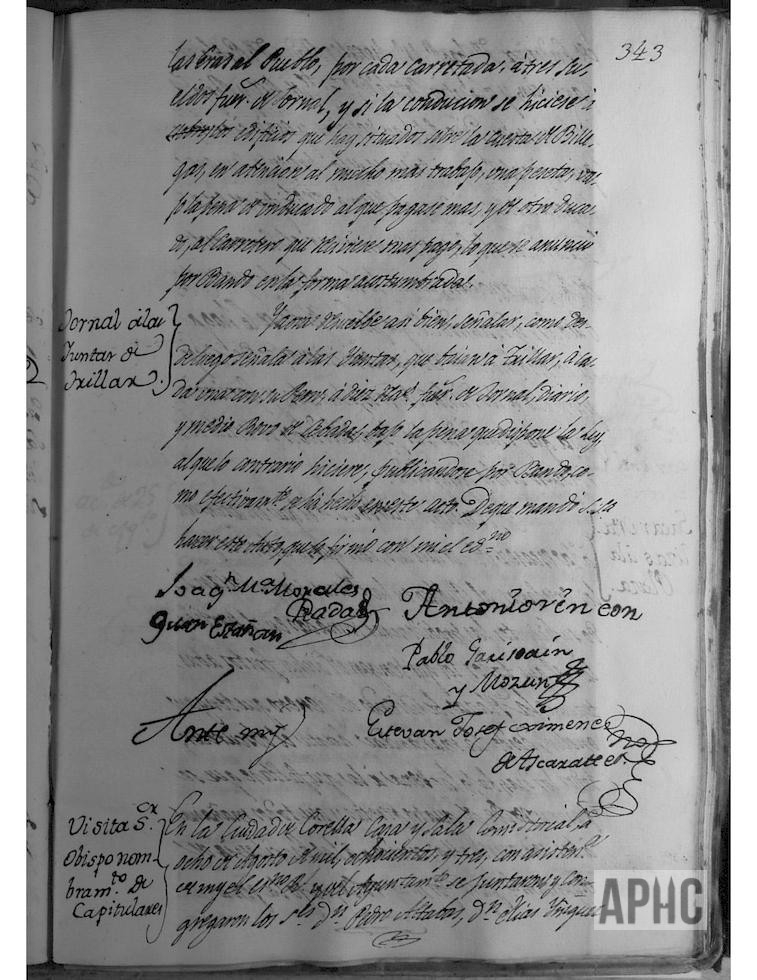 343
las Eras al Pueblo, por cada carretada, à tres suel
eldos fuer.s de Jornal, y si la conducion se hiciese à
edificios que hay situados sobre la Cuesta de Bille-
gas, en atencion al mucho mas trabajo, una peseta, va-
jo la pena de un ducado al que pagase mas, y de otro duca-
do, al Carretero que reciviere mas pago, lo que se anunció
por Bando en la forma acostumbrada.
Jornal à las
Juntas de
Trillar.
Y acordó resuelve asi bien, señalar, como des-
de luego señala à las Juntas, que huien à Trillar, à ca-
da una con su Peon, à diez Rea.s fuer.s de Jornal, diario,
y medio Rovo de Cebada, bajo la pena que dispone la Ley
al que lo contrario hiciere, publicandose por Bando, co-
mo efectivam.te se ha hecho en este acto. De que mandó S.Sa
hacer este Auto, que lo firmó con mi el es.no
Joaq.n M.a Morales
Rada
Antonio Vrencon
Juan Escañan
Pablo Garisoain
y Mozun
Ante my
Estevan Josef Ximenez
de Ascarate es.no
Visita S.or
Obispo nom-
bram.to de
Capitulares
En la Ciudad de Corella Casa y Sala Consistorial, à
ocho de Agosto de mil, ochocientos, y tres, con asisten.a
de my el es.no R.l y del Ayuntam.to se juntaron y con-
gregaron los S.res D.n Pedro Attabas, D.n Elias Yñiguez
APHC